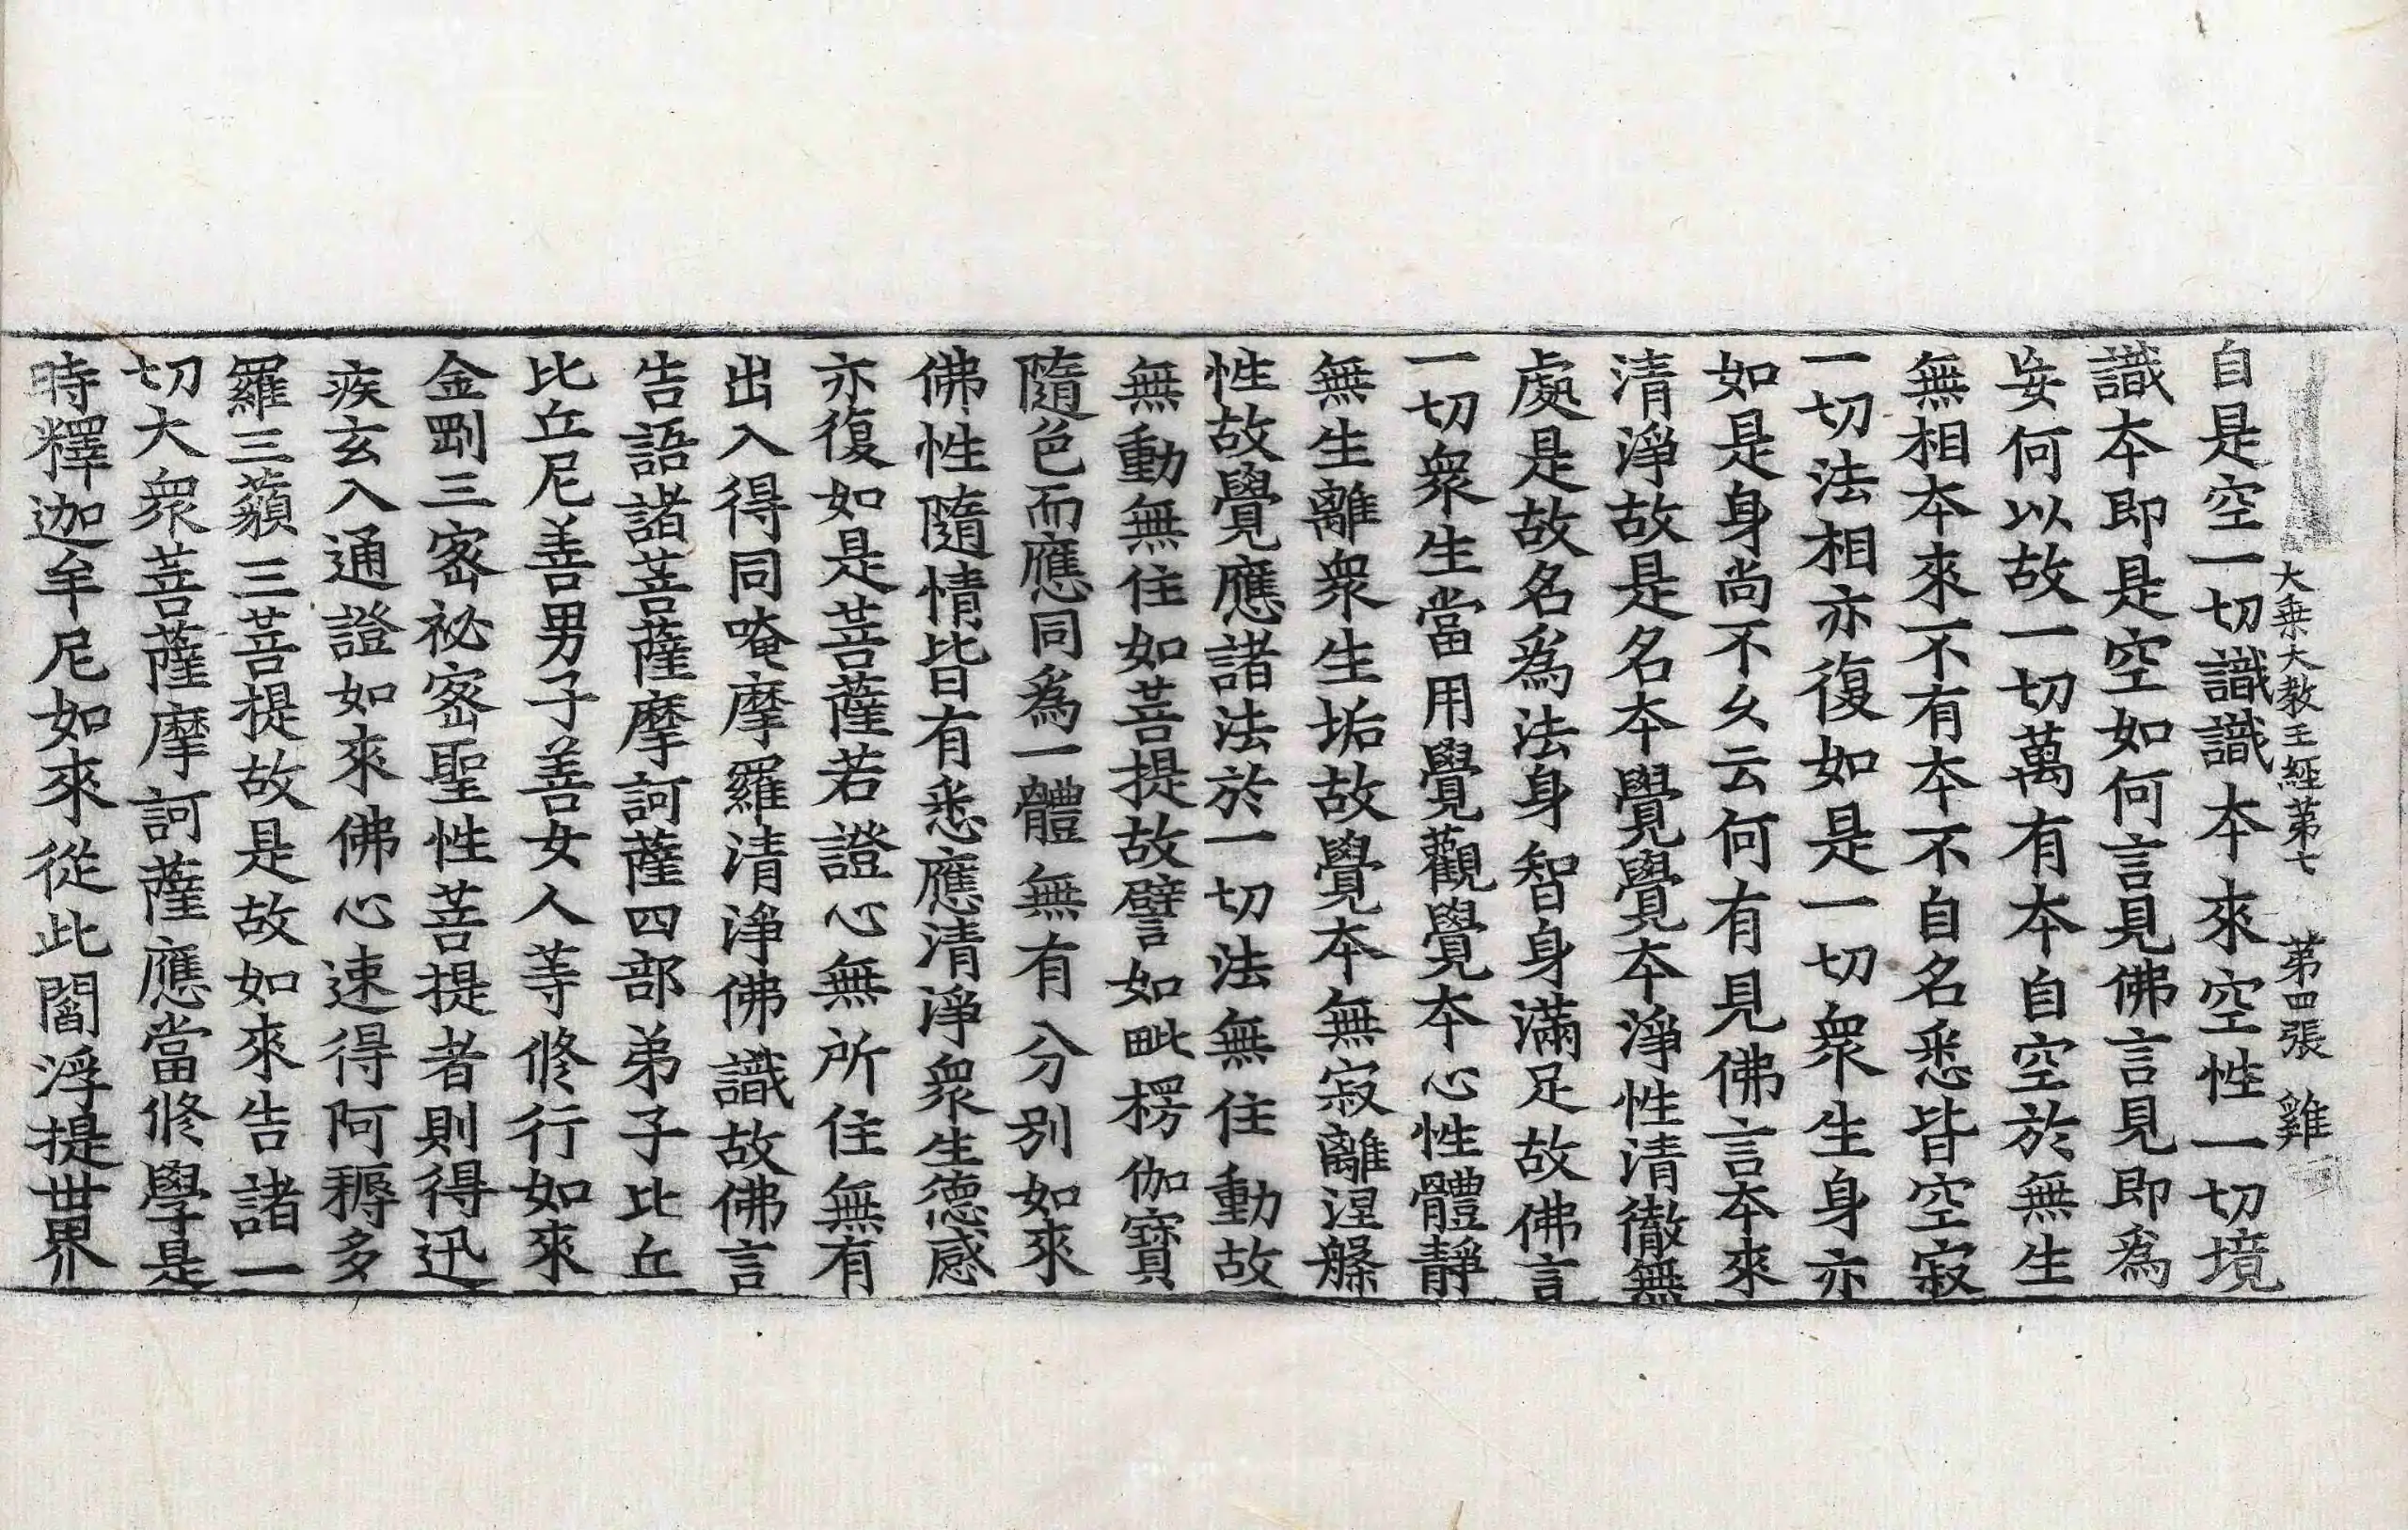 大乗大教王經第七 第四張 雞
自是空一切識識本來空性一切境
識本即是空如何言見佛言見即爲
妄何以故一切萬有本自空於無生
無相本來不有本不自名悉皆空寂
一切法相亦復如是一切衆生身亦
如是身尚不久云何有見佛言本來
清淨故是名本覺覺本淨性清徹無
處是故名爲法身智身滿足故佛言
一切衆生當用覺觀覺本心性體靜
無生離衆生垢故覺本無寂離涅槃
性故覺應諸法於一切法無住動故
無動無住如菩提故譬如毗楞伽寶
隨色而應同爲一體無有分別如來
佛性隨情皆有悉應清淨衆生德感
亦復如是菩薩若證心無所住無有
出入得同唵摩羅清淨佛識故佛言
告語諸菩薩摩訶薩四部弟子比丘
比丘尼善男子善女人等修行如來
金剛三密祕密聖性菩提者則得迅
疾玄入通證如來佛心速得阿耨多
羅三藐三菩提故是故如來告諸一
切大衆菩薩摩訶薩應當修學是
時釋迦牟尼如來從此閻浮提世界